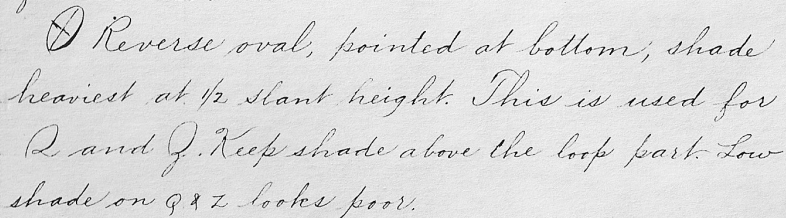 Reverse oval, pointed at bottom, shade
heaviest at 1/2 slant height. This is used for
Q and Z. Keep shade above the loop part. Low
shade on Q & Z looks poor.